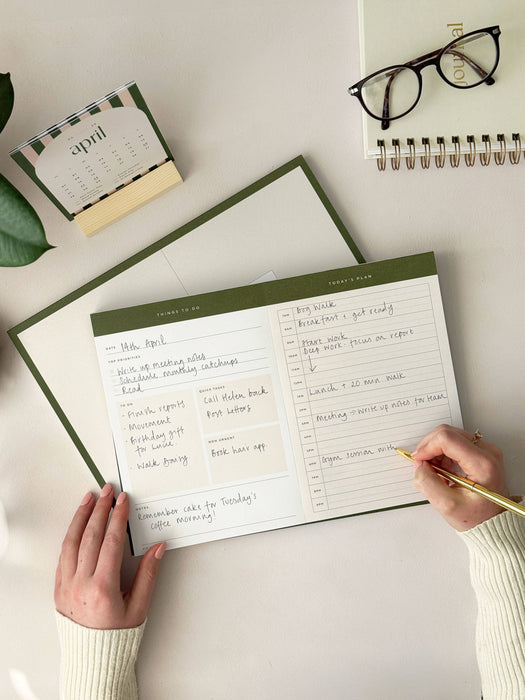 journal
april
THINGS TO DO
TODAY'S PLAN
DATE 14th April
TOP PRIORITIES
Write up meeting notes
Schedule monthly catchups
Read
TO DO
• Finish reports
• Movement
• Birthday gift
for Lucie
• Walk
QUICK TASKS
Call Helen back
Post letters
NON URGENT
Book hair app.
NOTES
Remember cake for Tuesday's
coffee morning!
Dog Walk
Breakfast + get ready
Start Work
Deep work - focus on report
Lunch + 20 min walk
Meeting → write up notes for team
Gym session with